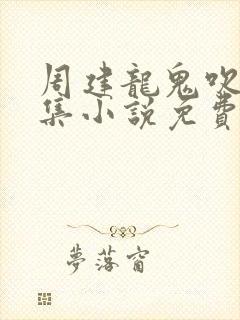 周建龍鬼吹
集小說免費
夢落窗